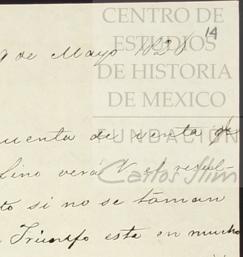 CENTRO DE
ESTUDIOS
DE HISTORIA
DE MEXICO
FUNDACIÓN
Carlos Slim
14
9 de Mayo
uenta de venta de
Lino verá V el resul-
to si no se toman
Triunfo esta en mucho